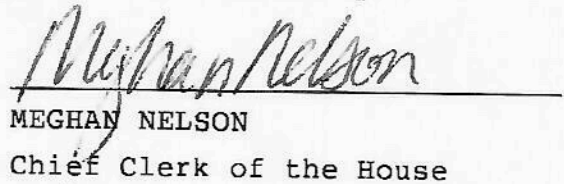 Meghan Nelson
MEGHAN NELSON
Chief Clerk of the House